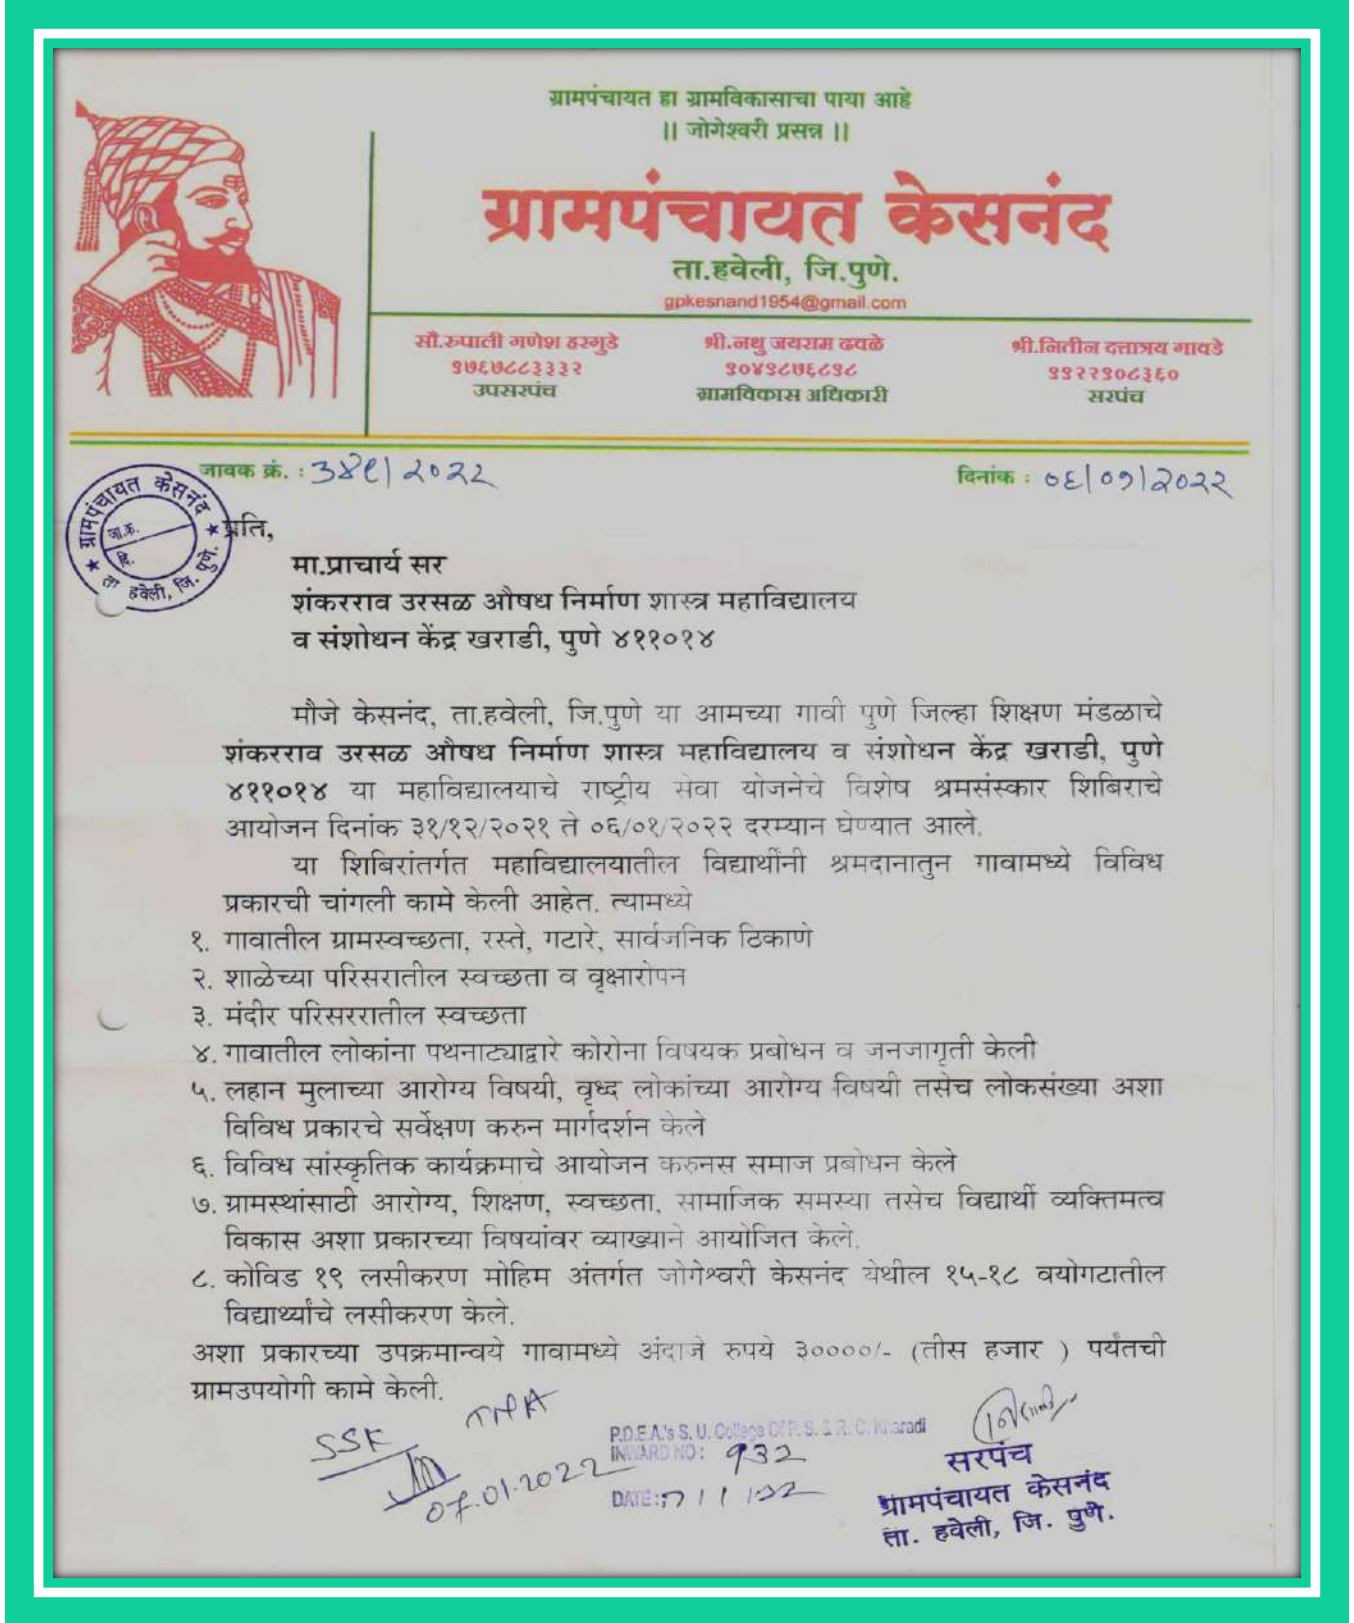 ग्रामपंचायत हा ग्रामविकासाचा पाया आहे
|| जोगेश्वरी प्रसन्न ||
ग्रामपंचायत केसनंद
ता.हवेली, जि.पुणे.
gpkesnand1954@gmail.com
सौ.रुपाली गणेश हरगुडे
९७६७८८३३३२
उपसरपंच
श्री.नथु जयराम ढवळे
९०४९८७६८९८
ग्रामविकास अधिकारी
श्री.नितीन दत्तात्रय गावडे
९९२२९०८३६०
सरपंच
जावक क्रं. : ३४९/२०२२
दिनांक : ०६/०१/२०२२
ग्रामपंचायत केसनंद
जा.क्र.
दि.
ता हवेली, जि. पुणे.
प्रति,
मा.प्राचार्य सर
शंकरराव उरसळ औषध निर्माण शास्त्र महाविद्यालय
व संशोधन केंद्र खराडी, पुणे ४११०१४
मौजे केसनंद, ता.हवेली, जि.पुणे या आमच्या गावी पुणे जिल्हा शिक्षण मंडळाचे
शंकरराव उरसळ औषध निर्माण शास्त्र महाविद्यालय व संशोधन केंद्र खराडी, पुणे
४११०१४ या महाविद्यालयाचे राष्ट्रीय सेवा योजनेचे विशेष श्रमसंस्कार शिबिराचे
आयोजन दिनांक ३१/१२/२०२१ ते ०६/०१/२०२२ दरम्यान घेण्यात आले.
या शिबिरांतर्गत महाविद्यालयातील विद्यार्थीनी श्रमदानातुन गावामध्ये विविध
प्रकारची चांगली कामे केली आहेत. त्यामध्ये
१. गावातील ग्रामस्वच्छता, रस्ते, गटारे, सार्वजनिक ठिकाणे
२. शाळेच्या परिसरातील स्वच्छता व वृक्षारोपन
३. मंदीर परिसररातील स्वच्छता
४. गावातील लोकांना पथनाट्याद्वारे कोरोना विषयक प्रबोधन व जनजागृती केली
५. लहान मुलाच्या आरोग्य विषयी, वृध्द लोकांच्या आरोग्य विषयी तसेच लोकसंख्या अशा
विविध प्रकारचे सर्वेक्षण करुन मार्गदर्शन केले
६. विविध सांस्कृतिक कार्यक्रमाचे आयोजन करुनस समाज प्रबोधन केले
७. ग्रामस्थांसाठी आरोग्य, शिक्षण, स्वच्छता, सामाजिक समस्या तसेच विद्यार्थी व्यक्तिमत्व
विकास अशा प्रकारच्या विषयांवर व्याख्याने आयोजित केले.
८. कोविड १९ लसीकरण मोहिम अंतर्गत जोगेश्वरी केसनंद येथील १५-१८ वयोगटातील
विद्यार्थ्यांचे लसीकरण केले.
अशा प्रकारच्या उपक्रमान्वये गावामध्ये अंदाजे रुपये ३००००/- (तीस हजार ) पर्यंतची
ग्रामउपयोगी कामे केली.
SSK
07.01.2022
P.D.E.A.'s S. U. College Of P. S. & R. C. Kharadi
INWARD NO: 932
DATE: 7/1/22
सरपंच
ग्रामपंचायत केसनंद
ता. हवेली, जि. पुणे.